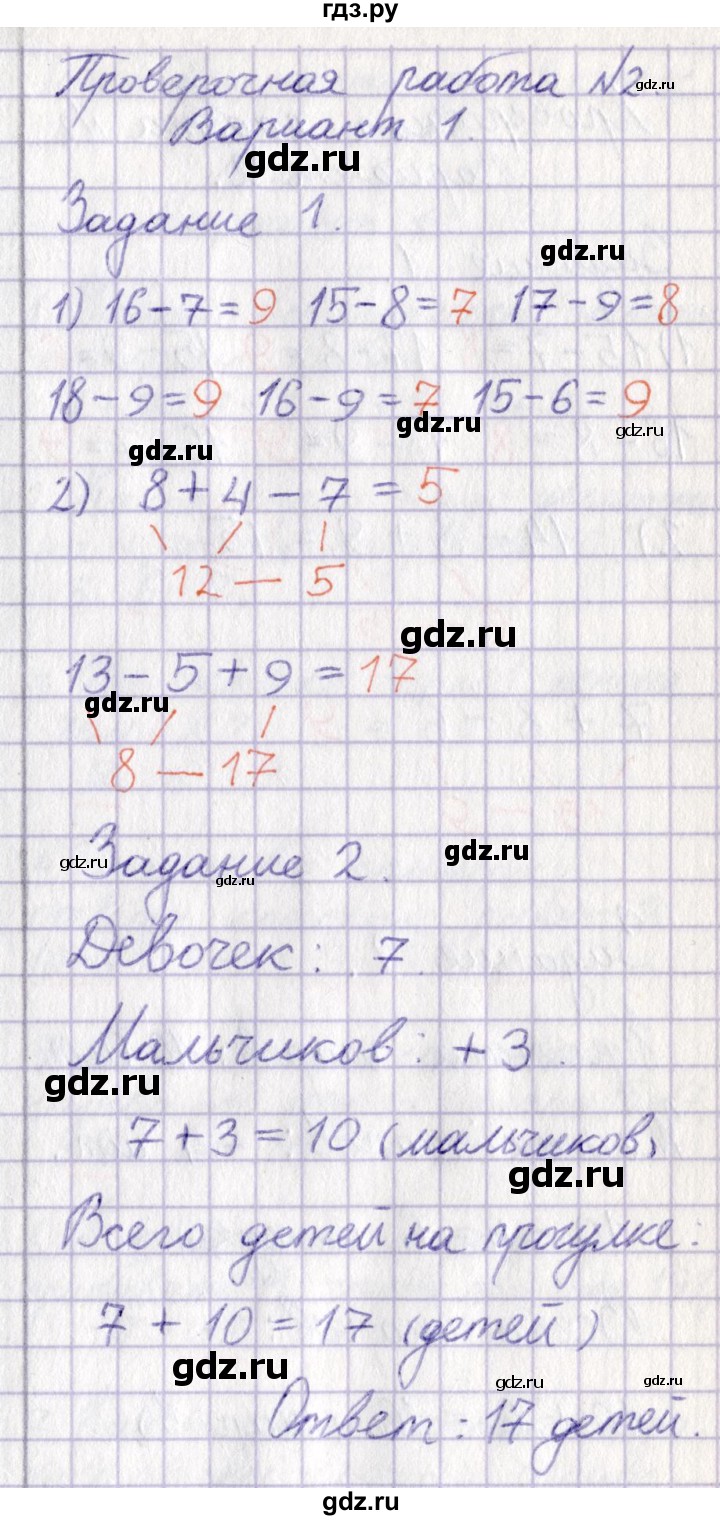 гдз.ру
Проверочная работа №2.
gdz.ru
Вариант 1.
gdz.ru
Задание 1.
gdz.ru
1) 16-7=9 15-8=7 17-9=8
18-9=9 16-9=7 15-6=9
gdz.ru
gdz.ru
gdz.ru
2) 8+4-7=5
12 — 5
gdz.ru
13-5+9=17
gdz.ru
8 — 17
gdz.ru
gdz.ru
Задание 2.
gdz.ru
Девочек: 7.
Мальчиков: +3.
gdz.ru
7+3=10 (мальчиков)
gdz.ru
Всего детей на прогулке:
7+10=17 (детей)
gdz.ru
gdz.ru
gdz.ru
Ответ: 17 детей.
gdz.ru